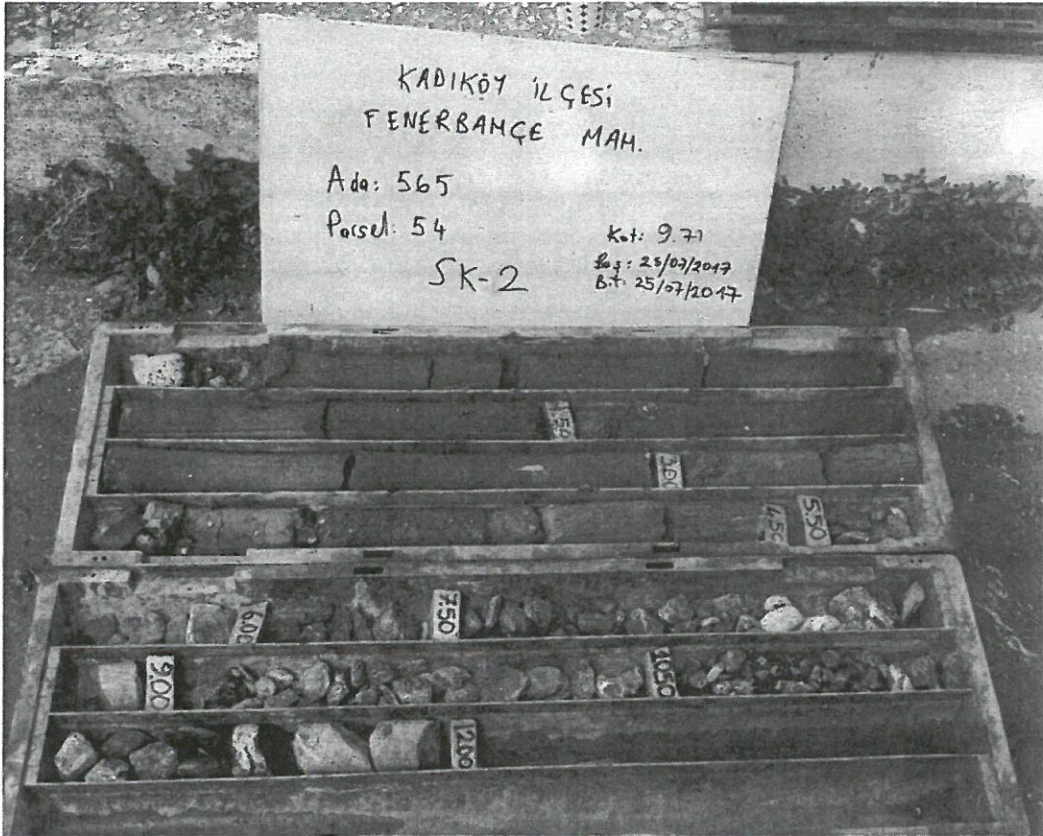 KADIKÖY İLÇESİ
FENERBAHÇE MAH.
Ada: 565
Parsel: 54
Kot: 9.71
SK-2
Baş: 25/07/2017
Bit: 25/07/2017
1.50
3.00
5.50
4.50
6.00
7.50
9.00
10.50
12.00